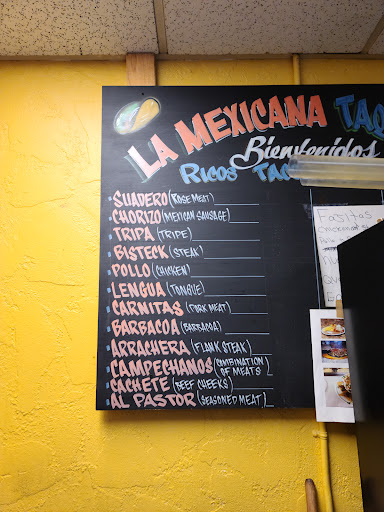 LA MEXICANA TAC
Bienvenidos
RICOS TAC
SUADERO (ROSE MEAT)
CHORIZO (MEXICAN SAUSAGE)
TRIPA (TRIPE)
BISTECK (STEAK)
POLLO (CHICKEN)
LENGUA (TONGUE)
CARNITAS (PORK MEAT)
BARBACOA (BARBACOA)
ARRACHERA (FLANK STEAK)
CAMPECHANOS (COMBINATION OF MEATS)
CACHETE (BEEF CHEEKS)
AL PASTOR (SEASONED MEAT)
Fajitas